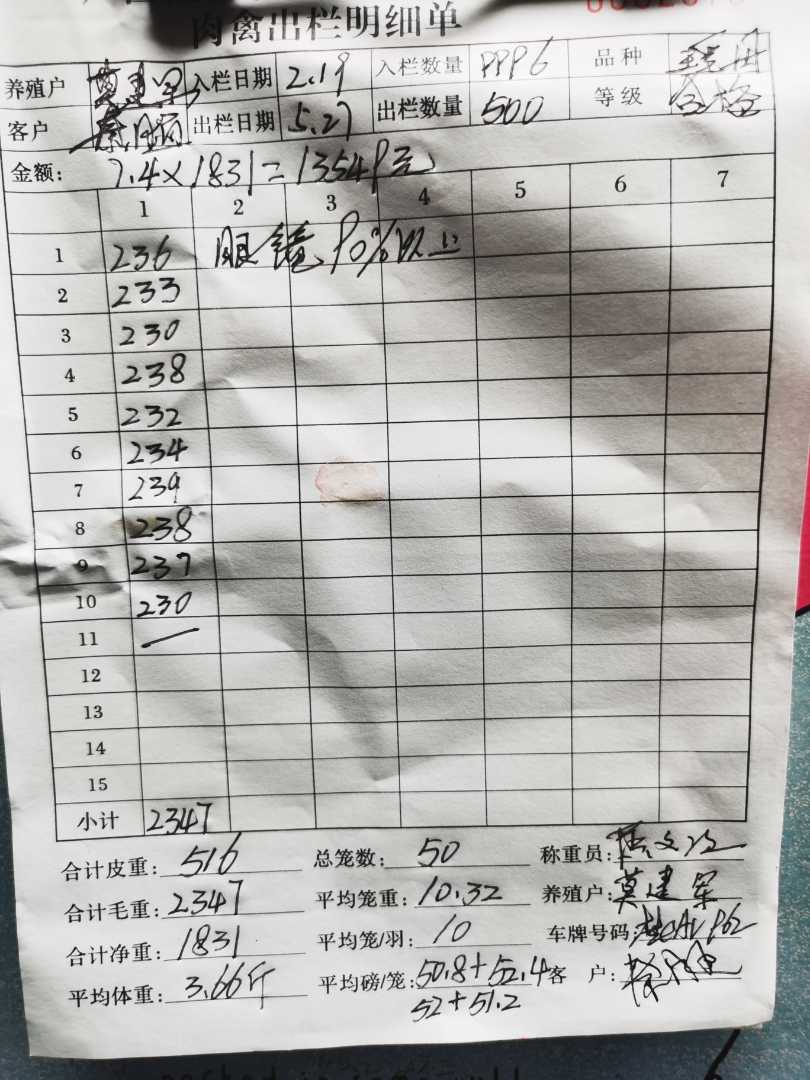 肉禽出栏明细单
养殖户 莫建军 入栏日期 2.19 入栏数量 品种
客户 出栏日期 5.27 出栏数量 500 等级 合格
金额: 7.4×1831=13549元
1 2 3 4 5 6 7
1 236 眼镜 90%以上
2 233
3 230
4 238
5 232
6 234
7 239
8 238
9 237
10 230
11 —
12
13
14
15
小计 2347
合计皮重: 516 总笼数: 50 称重员:
合计毛重: 2347 平均笼重: 10.32 养殖户: 莫建军
合计净重: 1831 平均笼/羽: 10 车牌号码:
平均体重: 3.66斤 平均磅/笼: 50.8+52.4 客 户:
52+51.2